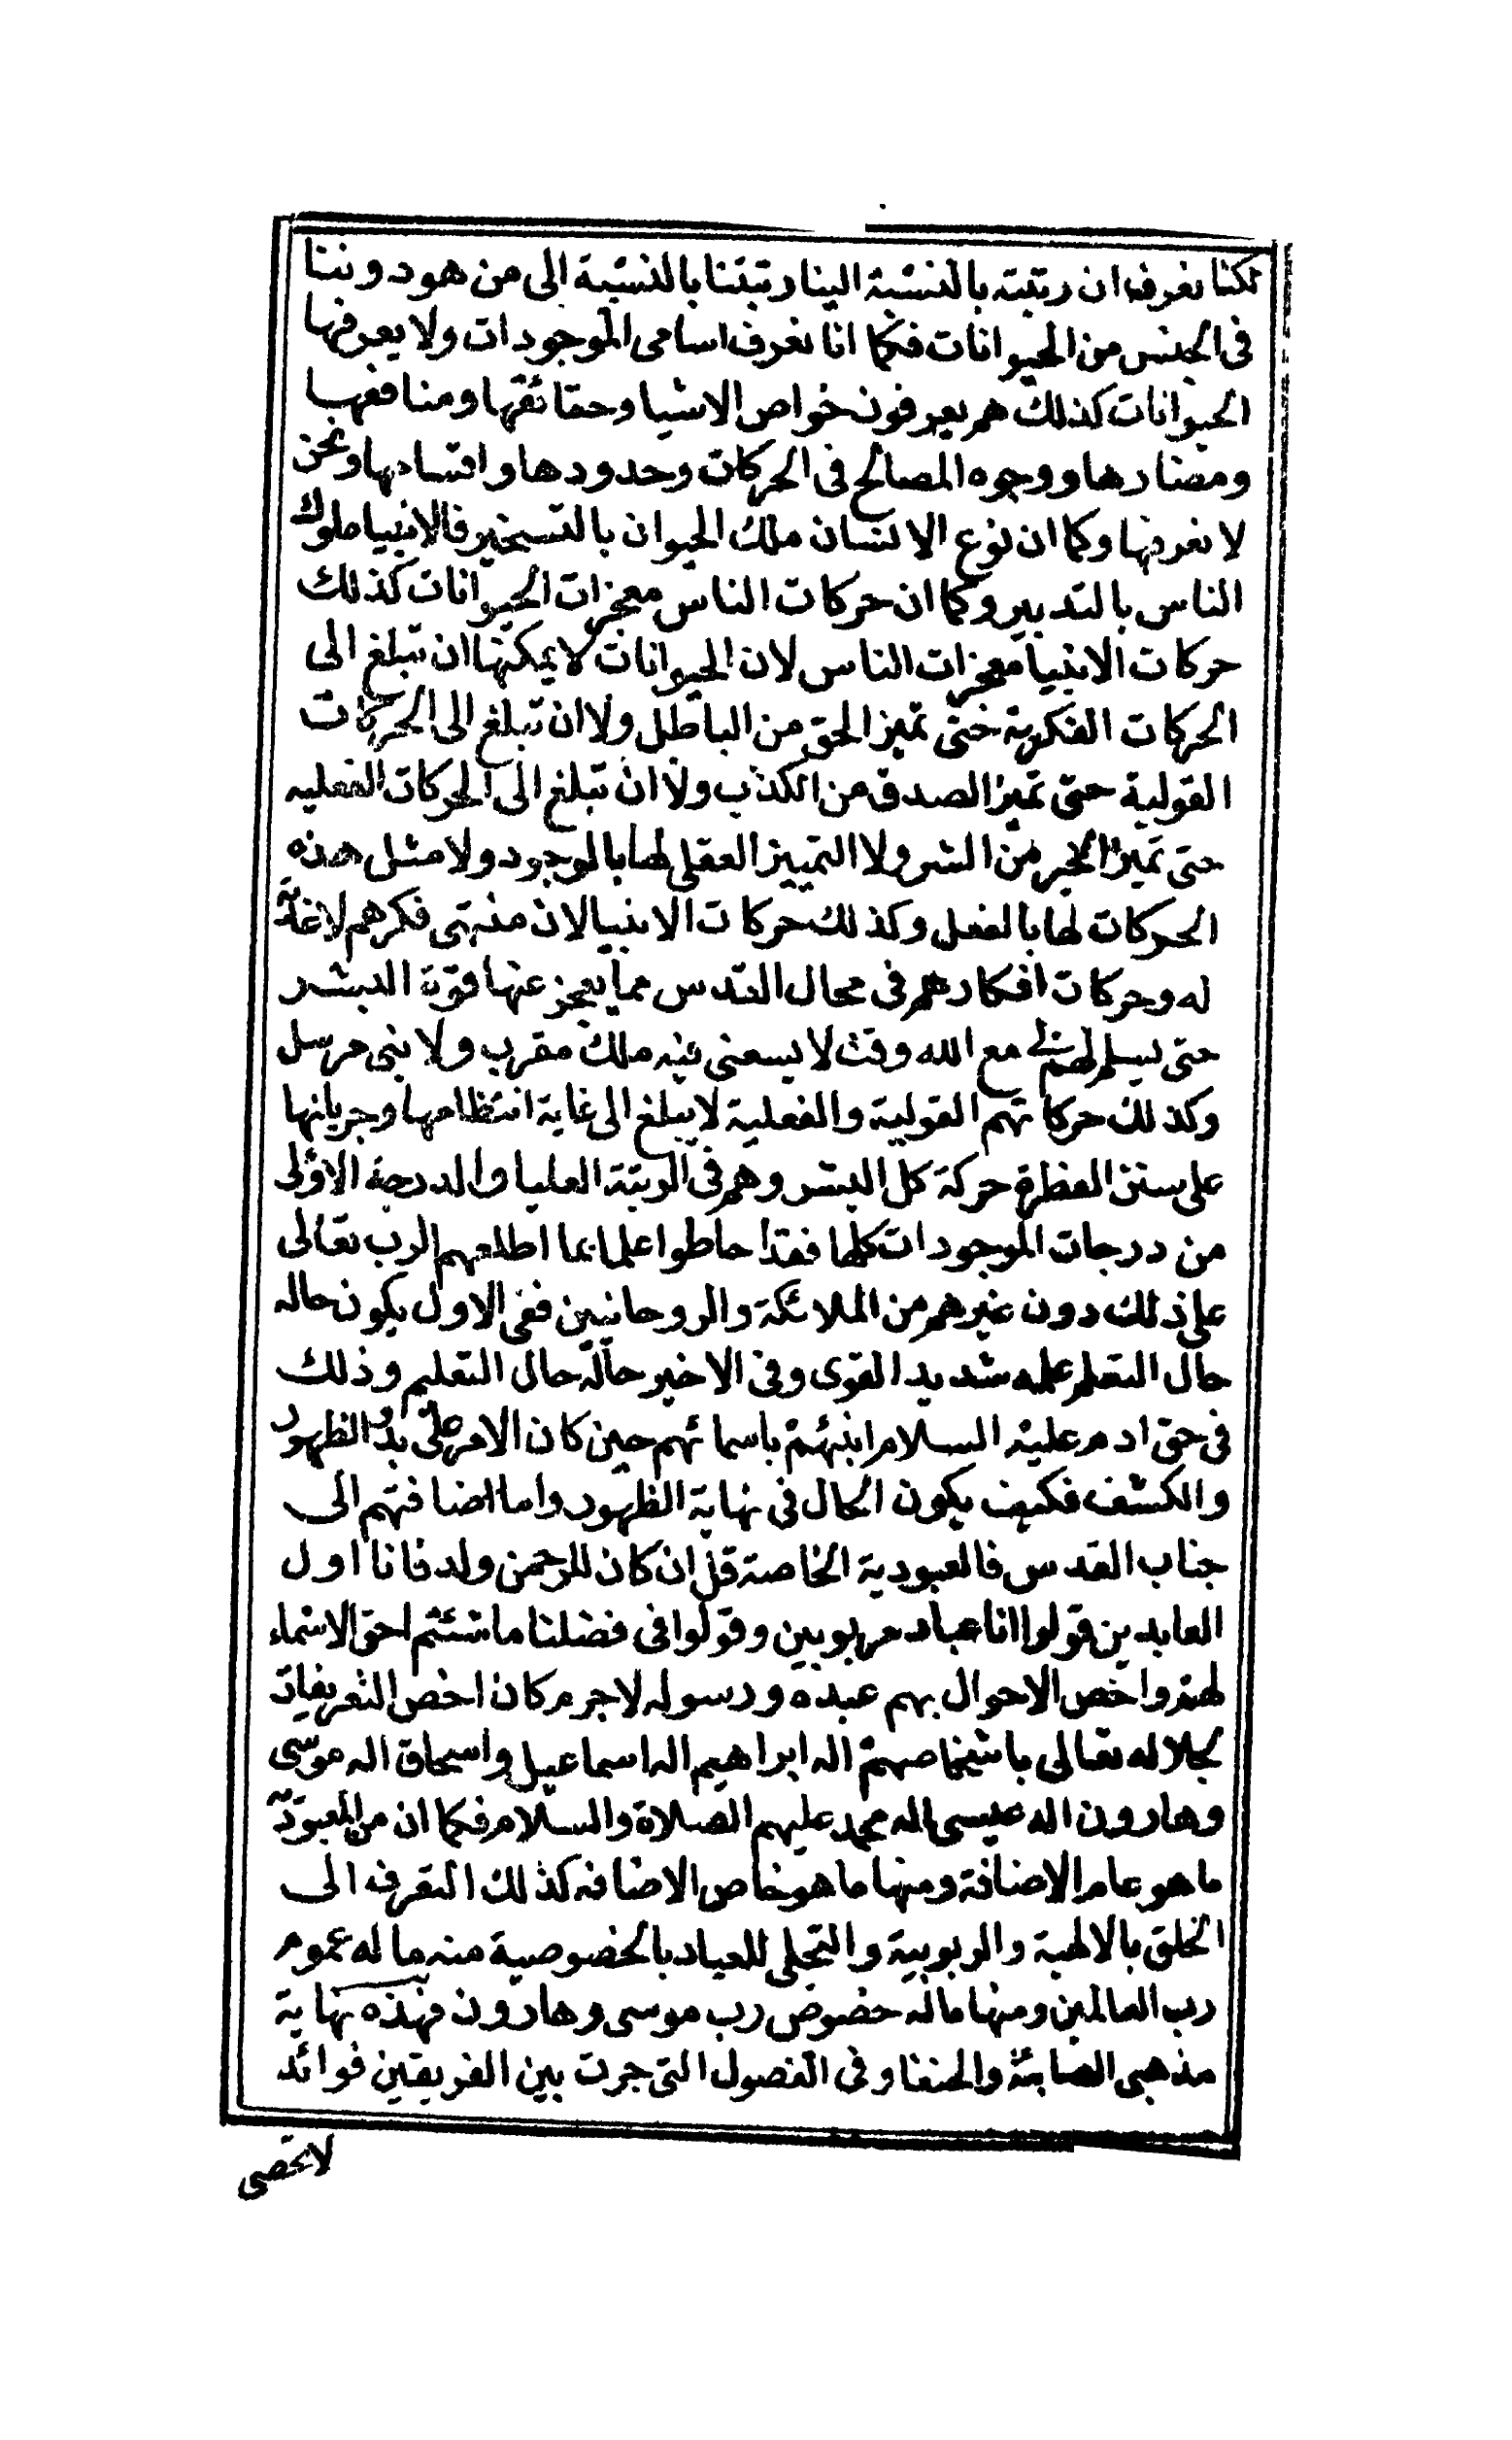 لكنا نعرف ان رتبته بالنسبة الينا رتبتنا بالنسبة الى من هو دوننا
فى الجنس من الحيوانات فكما انا نعرف اسامى الموجودات ولا يعرفها
الحيوانات كذلك هم يعرفون خواص الاشيا وحقائقها ومنافعها
ومضارها ووجوه المصالح فى الحركات وحدودها واقسامها ونحن
لا نعرفها وكما ان نوع الانسان ملك الحيوان بالتسخير فالانبيا ملوك
الناس بالتدبير وكما ان حركات الناس معجزات الحيوانات كذلك
حركات الانبيا معجزات الناس لان الحيوانات لا يمكنها ان تبلغ الى
الحركات الفكرية حتى تميز الحق من الباطل ولا ان تبلغ الى الحركات
القولية حتى تميز الصدق من الكذب ولا ان تبلغ الى الحركات الفعليه
حتى تميز الخير من الشر ولا التمييز العقلى لها بالوجود ولا مثل هذه
الحركات لها بالفعل وكذلك حركات الانبيا لان منتهى فكرهم لا غاية
له وحركات افكارهم فى مجال القدس مما يعجز عنها قوة البشر
حتى يسلم لهم لى مع الله وقت لا يسعنى فيه ملك مقرب ولا نبى مرسل
وكذلك حركاتهم القولية والفعلية لا يبلغ الى غاية انتظامها وجريانها
على سنن الفطرة حركة كل البشر وهم فى الرتبة العليا والدرجة الاولى
من درجات الموجودات كلها فقد احاطوا علما بما اطلعهم الرب تعالى
على ذلك دون غيرهم من الملائكة والروحانيين ففى الاول يكون حاله
حال التعلم علمه شديد القوى وفى الاخير حاله حال التعليم وذلك
فى حق ادم عليه السلام انبئهم باسمائهم حين كان الامر على بدو الظهور
والكشف فكيف يكون الحال فى نهاية الظهور واما اضافتهم الى
جناب القدس فالعبودية الخاصة قل ان كان للرحمن ولد فانا اول
العابدين قولوا انا عباد مربوبين وقولوا فى فضلنا ما شئتم احق الاسماء
لهم واخص الاحوال بهم عبده ورسوله لا جرم كان اخص التعريفات
لجلاله تعالى باشخاصهم اله ابراهيم اله اسماعيل واسحاق اله موسى
وهارون اله عيسى اله محمد عليهم الصلاة والسلام فكما ان من العبودية
ما هو عام الاضافة ومنها ما هو خاص الاضافه كذلك التعرف الى
الخلق بالالهية والربوبية والتجلى للعباد بالخصوصية منه ما له عموم
رب العالمين ومنها ماله خصوص رب موسى وهارون فهذه نهاية
مذهبى الصابئة والحنفا وفى الفصول التى جرت بين الفريقين فوائد
لا تحصى